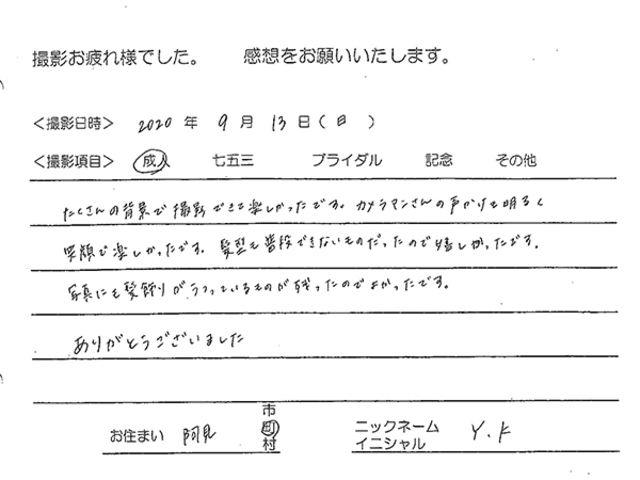 撮影お疲れ様でした。 感想をお願いいたします。
<撮影日時> 2020 年 9 月 13 日( 日 )
<撮影項目> 成人 七五三 ブライダル 記念 その他
たくさんの背景で撮影できて楽しかったです。カメラマンさんの声かけも明るく
笑顔で楽しかったです。髪型も普段できないものだったので嬉しかったです。
写真にも髪飾りがうつっているものが残ったのでよかったです。
ありがとうございました
お住まい 阿見 市町村
ニックネーム イニシャル Y.K